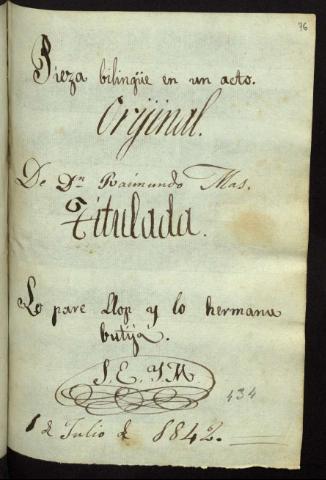 76
Pieza bilingüe en un acto.
Orijinal.
De Dn Raimundo Mas.
Titulada.
Lo pare Llop y lo hermana
butijá.
S. E. Y M.
434
1 de Julio de 1842.